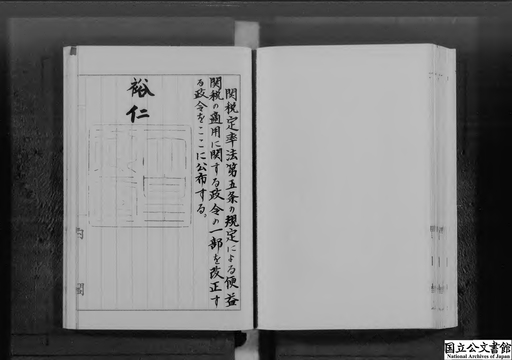 関税定率法第五条の規定による便益
関税の適用に関する政令の一部を改正す
る政令をここに公布する。
裕仁
内閣
国立公文書館
National Archives of Japan